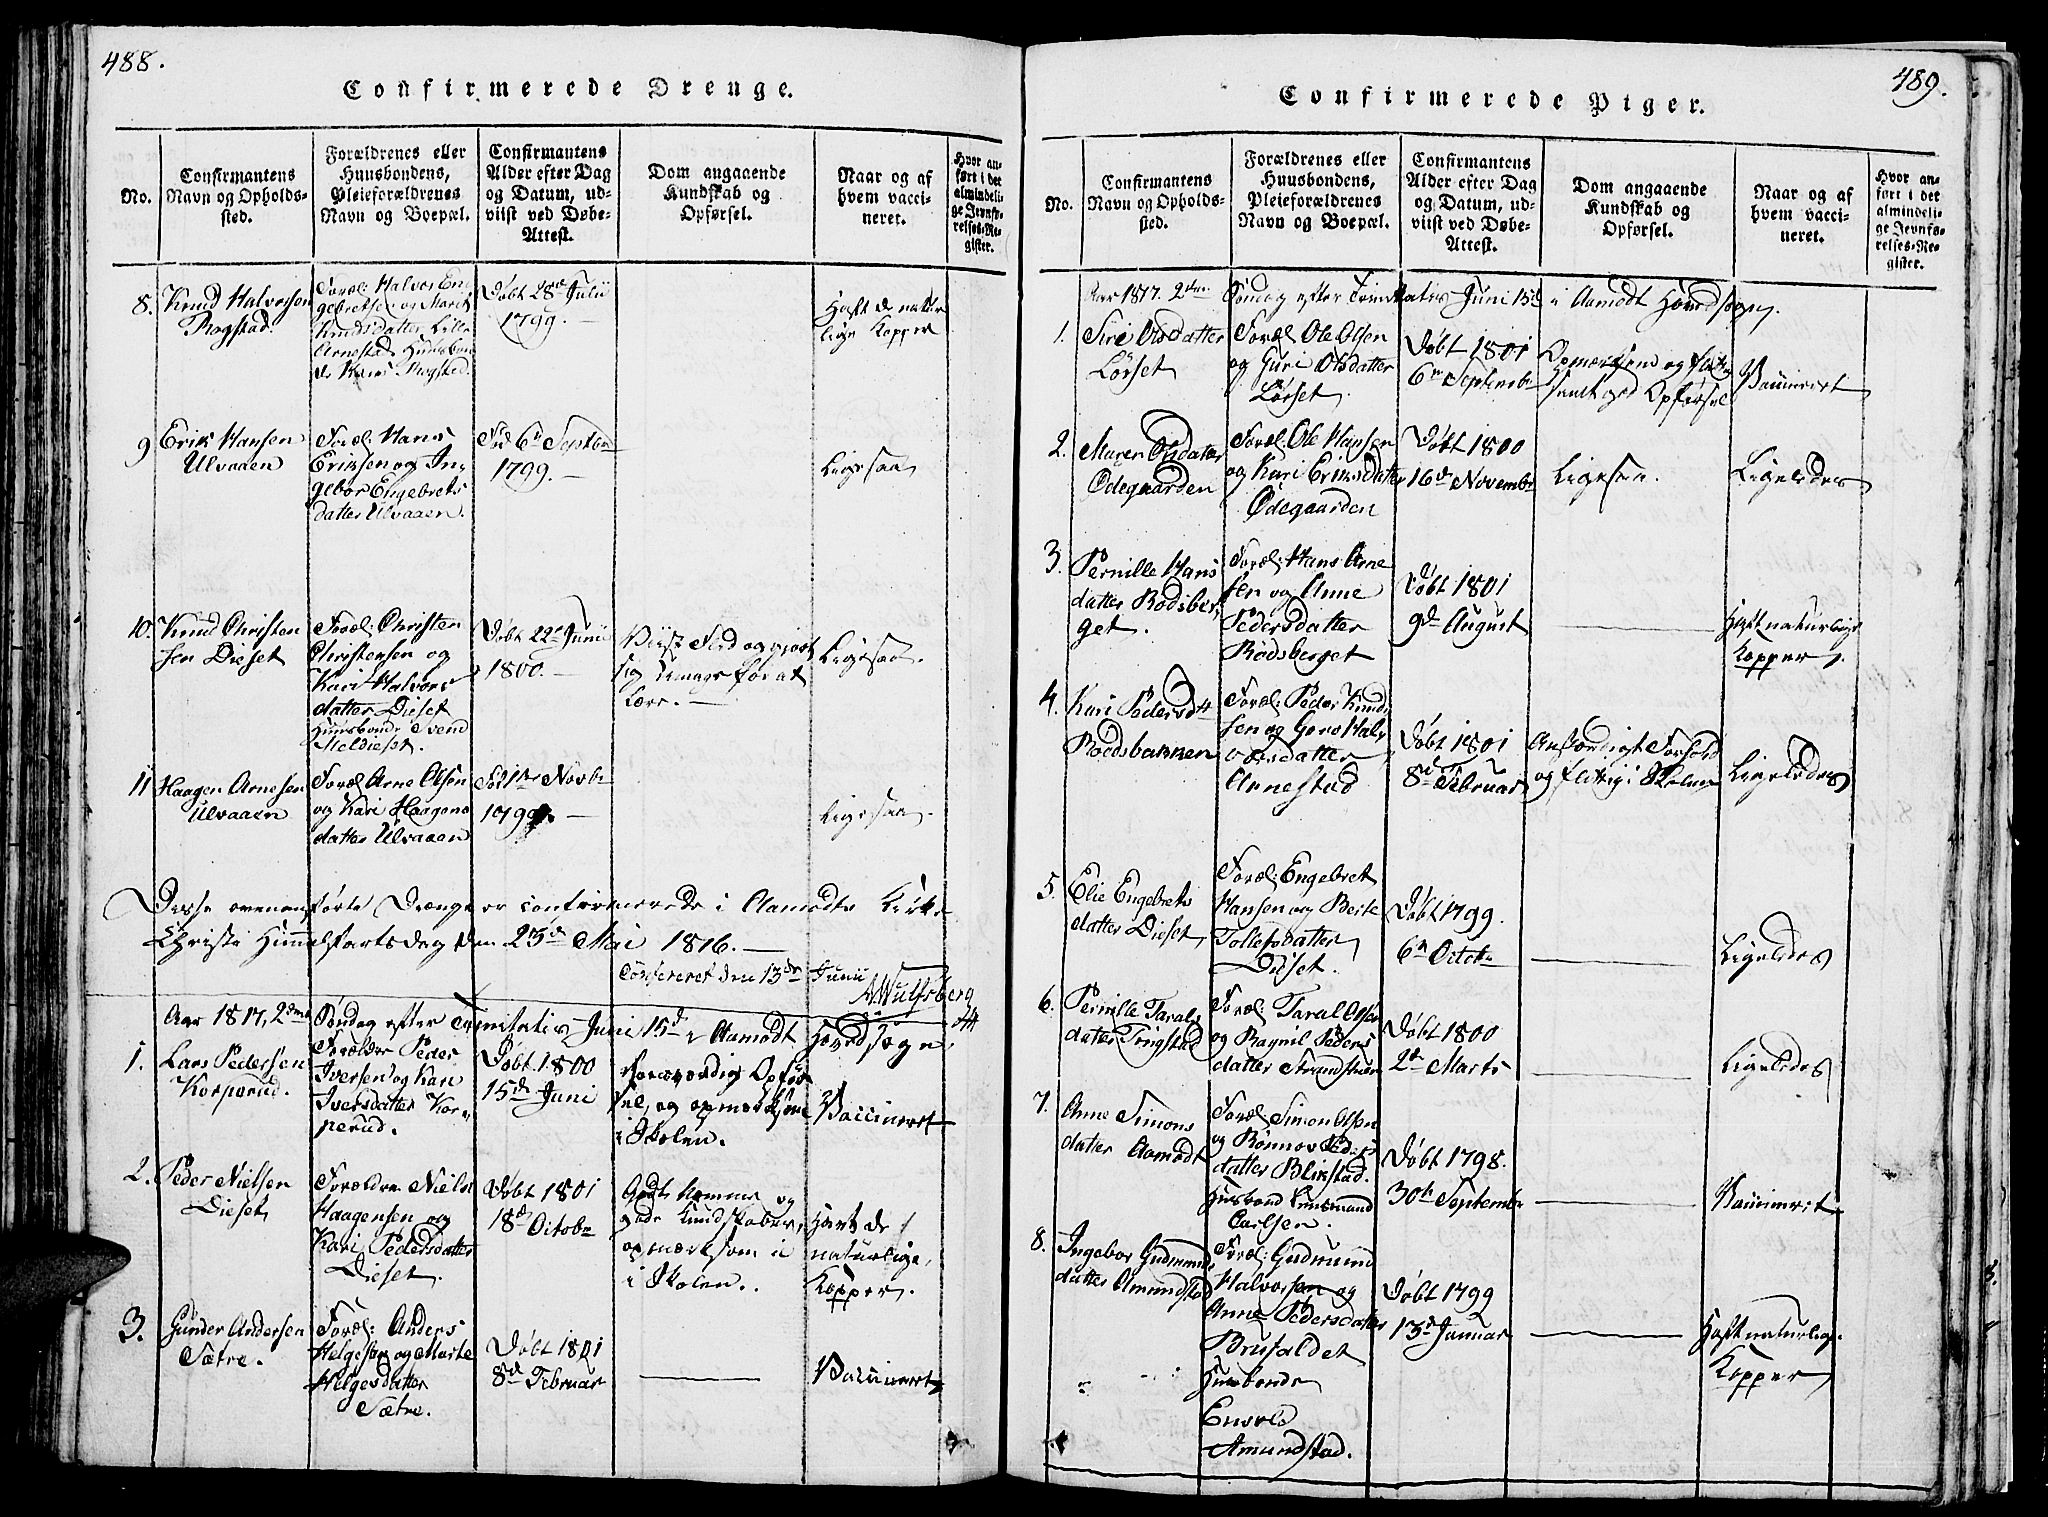 488.
Confirmerede Drenge.
No.
Confirmantens
Navn og Opholds-
sted.
Forældrenes eller
Huusbondens,
Pleieforældrenes
Navn og Boepæl.
Confirmantens
Alder efter Dag
og Datum, ud-
viist ved Døbe-
Attest.
Dom angaaende
Kundskab og
Opførsel.
Naar og af
hvem vacci-
neret.
Hvor an-
ført i det
almindeli-
ge Jevnfø-
relses-Re-
gister.
8. Knud Halvorsen
Rogstad.
Foræl: Halvor En-
gebretsen og Marit
Knudsdatter Lille
Arnestad Huusbon-
de Rogstad.
Døbt 28de Julii
1799.
Haft de natur
lige Kopper
9 Erik Hansen
Ulvaaen
Foræl: Hans
Eriksen og In-
gebor Engebrets
datter Ulvaaen.
6d Septbr
1799.
Ligesaa
10. Knud Christen
sen Dieset
Foræl: Christen
Christensen og
Kari Halvors
datter Dieset
Huusbonde Svend
Meldieset.
Døbt 22de Junii
1800.
Viist Flid og gjort
sig Umage for at
lære.
Ligesaa.
11 Haagen Arnesen
Ulvaaen
Foræl: Arne Olsen
og Kari Haagens
datter Ulvaaen
Novbr
1799.
Ligesaa.
Disse ovenanførte Drenge er confirmerede i Aamodts Kirke
Christi Himmelfartsdag den 23d Mai 1816.
Confereret den 13de Junii
Wulfsberg
Aar 1817, 2den Søndag efter Trinitatis Juni 15d i Aamodt Hovedsogn.
1. Lars Pedersen
Korperud.
Forældre Peder
Iversen og Kari
Iversdatter Kor-
perud.
Døbt 1800
15d Juni
Opfør
sel, og opmærksom
i Skolen.
Vaccineret
2. Peder Nielsen
Dieset
Forældre Niels
Haagensen og
Kari Pedersdatter
Dieset.
Døbt 1801
18d Octobr
Godt Nemme og
gode Kundskaber,
opmærksom
i Skolen.
Havt de
naturlige
Kopper.
3. Gunder Andersen
Sætre.
Foræl: Anders
Helgesen og Marte
Helgesdatter
Sætre.
Døbt 1801
8d Februar
Vaccineret
489.
Confirmerede Piger.
No.
Confirmantens
Navn og Opholds-
sted.
Forældrenes eller
Huusbondens,
Pleieforældrenes
Navn og Boepæl.
Confirmantens
Alder efter Dag
og Datum, ud-
viist ved Døbe-
Attest.
Dom angaaende
Kundskab og
Opførsel.
Naar og af
hvem vacci-
neret.
Hvor an-
ført i det
almindeli-
ge Jevnfø-
relses-Re-
gister.
Aar 1817. 2den Søndag efter Trinitatis Juni 15d i Aamodt Hovedsogn.
1. Siri Olsdatter
Lørset
Foræl: Ole Olsen
og Guri Olsdatter
Lørset
Døbt 1801
6te Septembr
Opmærksom og flittig
samt god Opførsel
Vaccineret
2. Maren Olsdatter
Ødegaarden
Foræl: Ole Hansen
og Kari Eriksdatter
Ødegaarden
Døbt 1800
16d Novembr
Ligesaa.
Ligeledes
3. Pernille Hans
datter Rodsber
get.
Foræl: Hans Arne
sen og Anne
Pedersdatter
Rodsberget
Døbt 1801
9de August
Haft naturlige
Kopper.
4. Kari Pedersdtt
Roodsbakken
Foræl: Peder Knud
sen og Goro Hal-
vorsdatter
Arnestad
Døbt 1801
8de Februar
Anstændigt Forhold
og flittig i Skolen
Ligeledes
5. Elie Engebrets
datter Dieset
Foræl: Engebret
Hansen og Berte
Tollefsdatter
Dieset.
Døbt 1799.
6te Octobr
Ligeledes
6. Pernille Taralds
datter Tingstad
Foræl: Taral Olsen
og Ragnil Peders
datter
Døbt 1800
2de Marts
Ligeledes
7. Anne Simons
datter Aamodt
Foræl: Simon Olsen
og Rønnov Peders
datter Blikstad.
Huusbond Lensmand
Carlsen.
Døbt 1798.
30te Septembr
Vaccineret
8. Ingebor Gudmunds
datter Amundstad
Foræl: Gudmund
Halvorsen og
Anne Pedersdatter
Brufaldet
Huusbonde
Amundstad.
Døbt 1799
13d Januar
Haft naturlige
Kopper